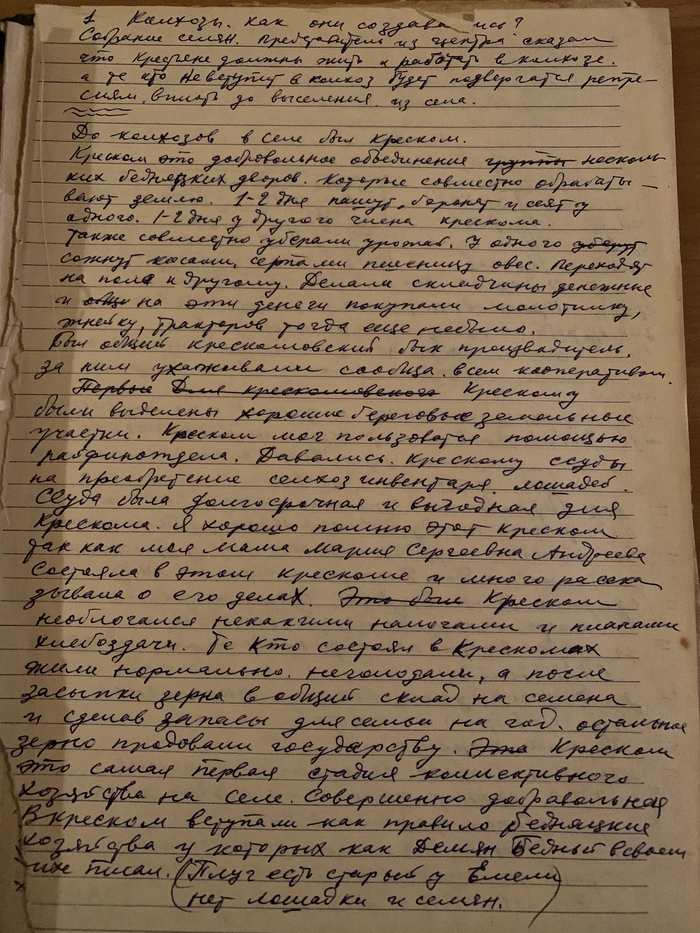 1 Колхозы. Как они создавались?
Собрание селян. Представитель из центра сказал
что Крестьене должны жить и работать в колхозе.
а те кто невступит в колхоз будет подвергатся репре-
сиям, вплоть до выселения из села.
До колхозов в селе был Креском.
Креском это добровольное объединение группы несколь
ких бедняцких дворов. Которые совместно обрабаты-
вают землю. 1-2 дня пашут, боронят и сеят у
одного. 1-2 дня у другого члена крескома.
Также совместно уберали урожай. У одного уберут
сожнут косами, серпами пшеницу овес. Переходят
на поле к другому. Делали складчины денежные
и общ на эти денеги покупали молотилку,
жнейку, тракторов тогда еще небыло.
Был общий Крескомовский бык производитель,
за ним ухаживали сообща, всем кооперативом.
Первые Для крескомовского Крескому
были выделены хорошие береговые земельные
участки. Креском мог пользоватся помощью
райфинотдела. Давались Крескому ссуды
на преобретение селхоз инвентаря, лошадей.
Ссуда была долгосрочная и выгодная для
Крескома. Я хорошо помню этот креском
так как моя Мама Мария Сергеевна Андреева
состояла в этом крескоме и много расска
зывала о его делах. Это был Креском
необлогался некакими налогами и планами
хлебоздачи. Те кто состоял в Крескомах
жили нормально. неголодали, а после
засыпки зерна в общий склад на семена
и сделав запасы для семьи на год. остальное
зерно продовали государству. Это Креском
это самая первая стадия коллективного
хозяйства на селе. Совершенно добравольная
В креском вступали как правило бедняцкие
хозяйства у которых как Демян Бедный в своем
их писал. (Плуг есть старый у Емели
нет лошадки и семян.)